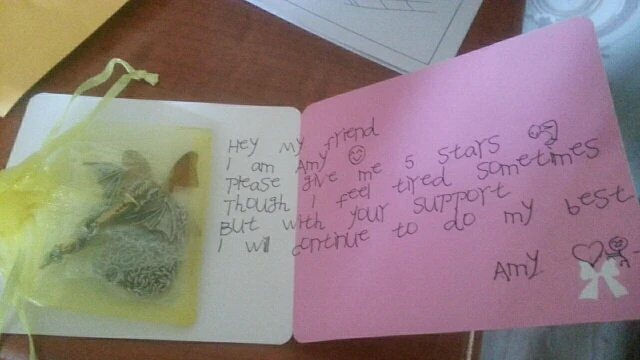 Hey my friend
I am Amy
Please give me 5 stars
Though I feel tired sometimes
But with your support
I will continue to do my best
Amy